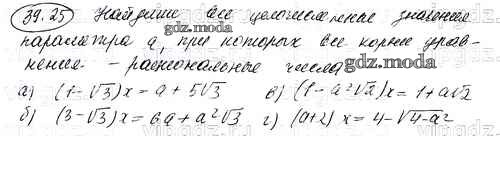 39.25 Найдите все целочисленные значения
параметра a, при которых все корни урав-
gdz.math.com
нения - рациональные числа
gdz.math.com
а) (1-√3)x = a + 5√3 в) (1 - a²√2)x = 1 + a√2
б) (3-√3)x = 6a + a²√3 г) (a+2) x = 4-√4-a²